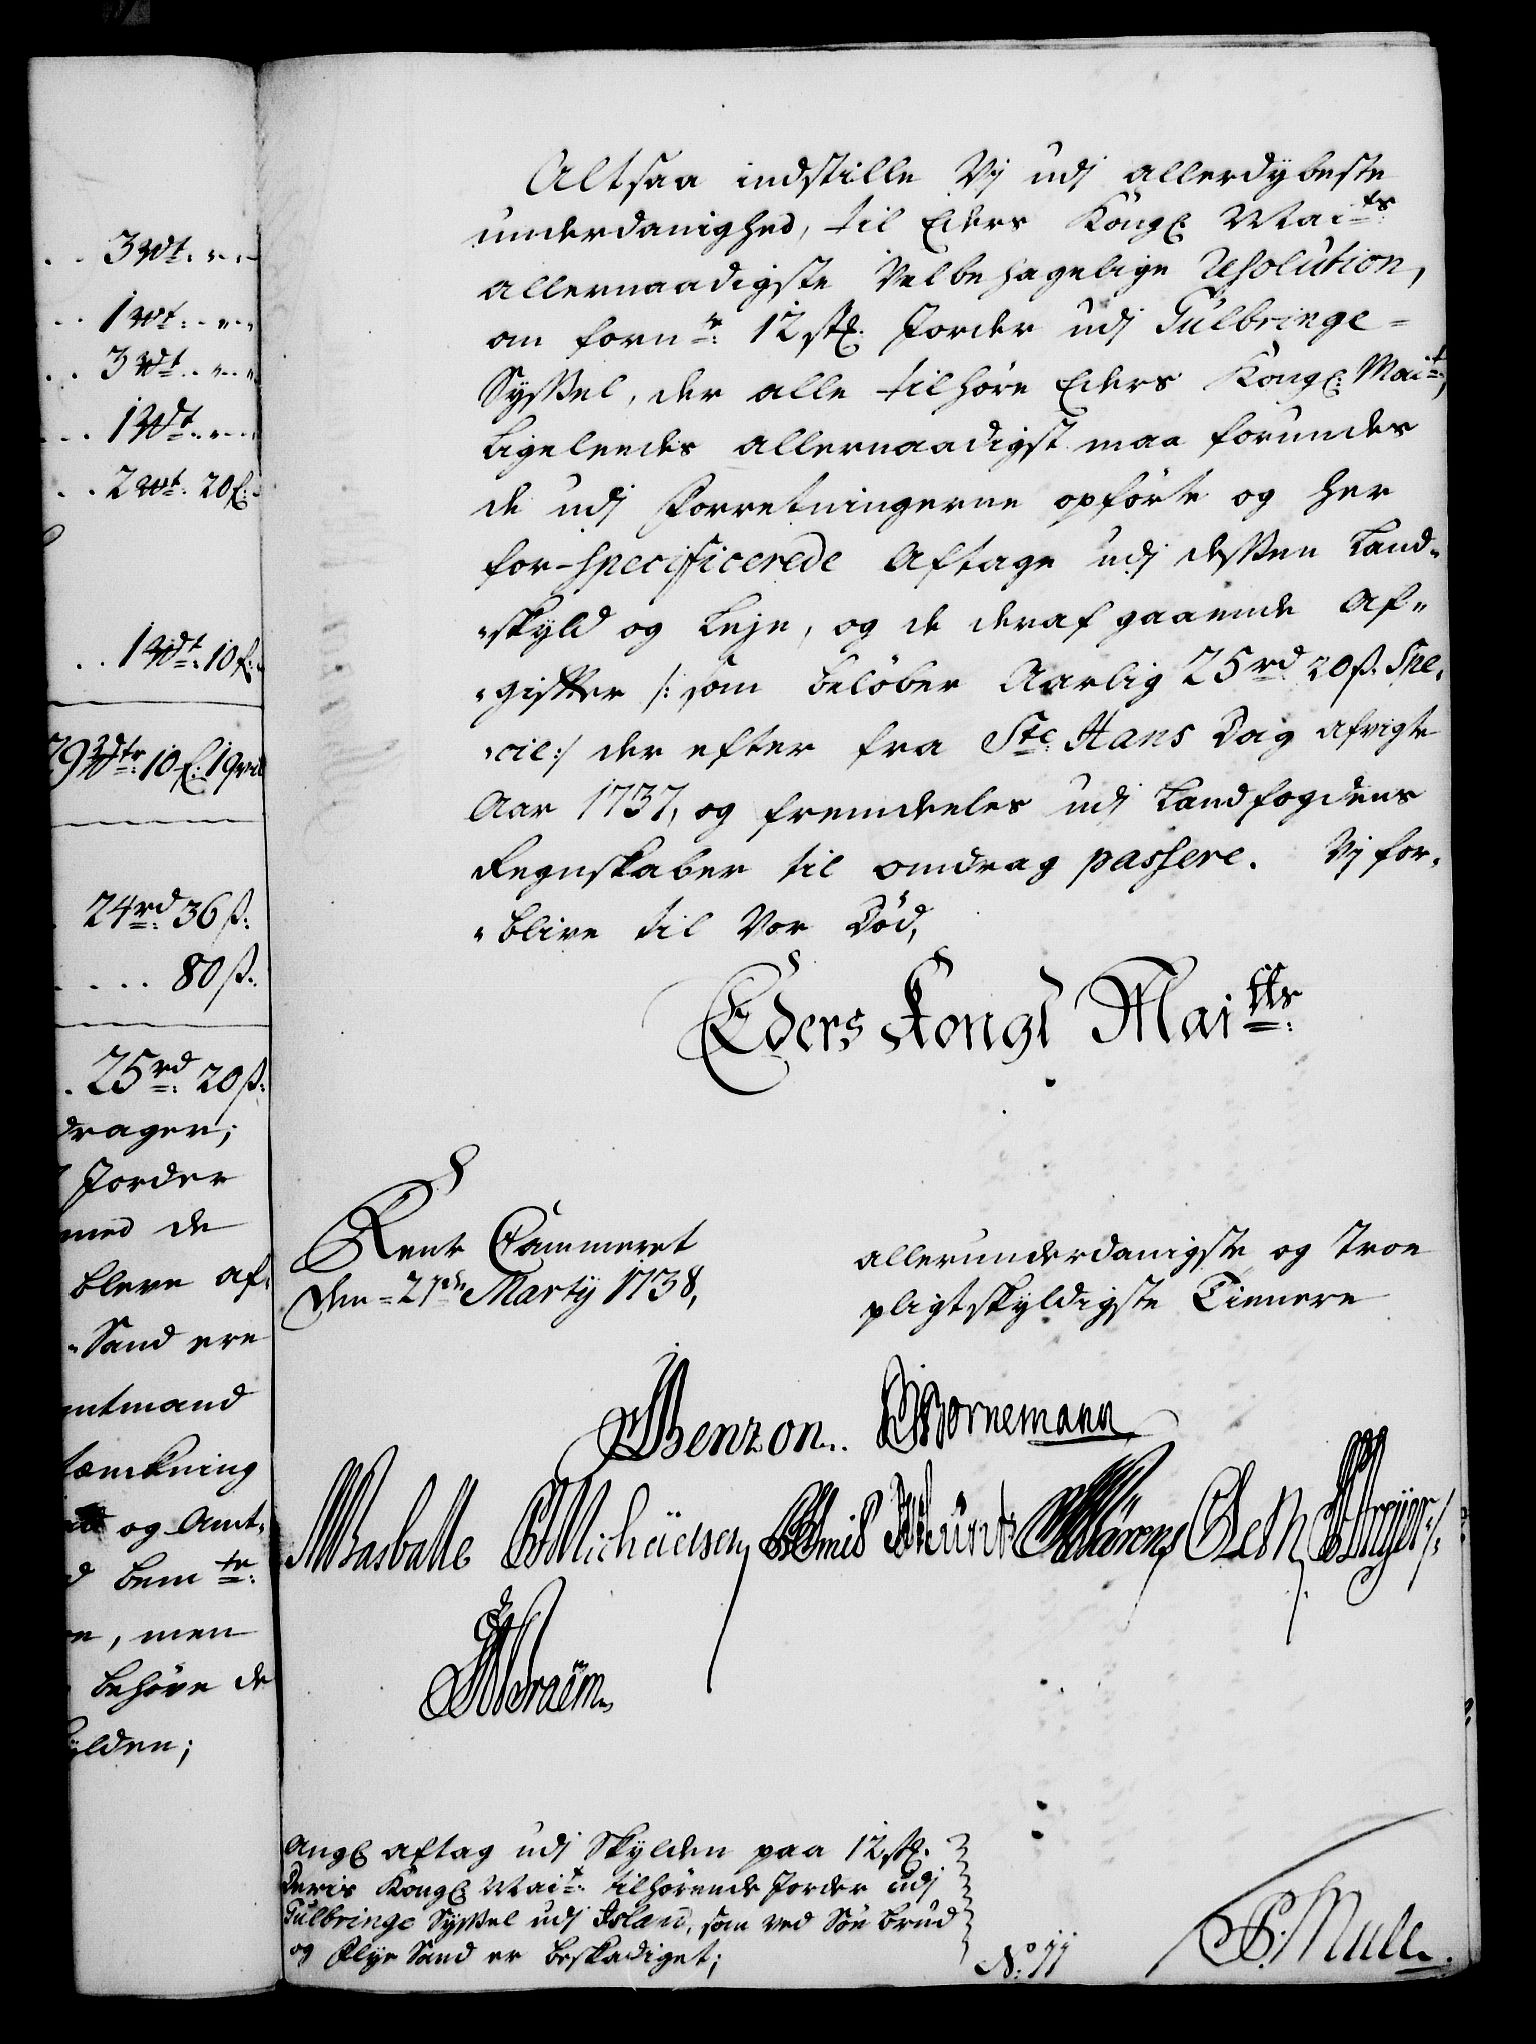 3 Wt:
1 Wt:
3 Wdt:
1 Wdt:
2 Wt: 20 f:
1 Wdt: 10 f:
79 Wdtr: 10 f: 19
24rd: 36 ß:
80 ß:
25rd: 20 ß:
drager;
Jorder
med de
bleve af-
-Sand ere
mtmand
og Amt-
bemte:
, men
behøve de
ylden;
Altsaa indstille Vj udj allerdybeste
underdanighed, til Eders Kongl: Maits:
allernaadigste Velbehagelige Resolution,
om fornte: 12 stk: Jorder udj Gulbringe-
Syssel, der alle tilhøre Eders Kongl: Mait:,
ligeleedes allernaadigst maa forundes
de udj Forretningerne opførte og her
for-specificerede Aftage udj dessen Land-
-skyld og Leje, og de deraf gaaende Af-
-gifter /: som beløber Aarlig 25rd: 20 ß: Spe-
-cie :/ der efter fra Stc: Hans Dag afvigte
Aar 1737, og fremdeeles udj Landfogdens
Regnskaber til omdrag passere. Vj for-
-blive til Vor Død,
Eders Kongl Maitts:
Rente Cammeret
den 21de Martij 1738,
allerunderdanigste og Troe
pligtskyldigste Tienere
Benzon. Bornemann
Basballe Michäelsen Munt Sørens Oeth Dreyer
Braëm
Angl: aftag udj Skylden paa 12 stk:
Deris Kongl: Mait: tilhørende Jorder udj
Gulbringe Syssel udj Island, som ved Søe brud
og Flye Sand er beskadiget;
No: 11
P: Mule.